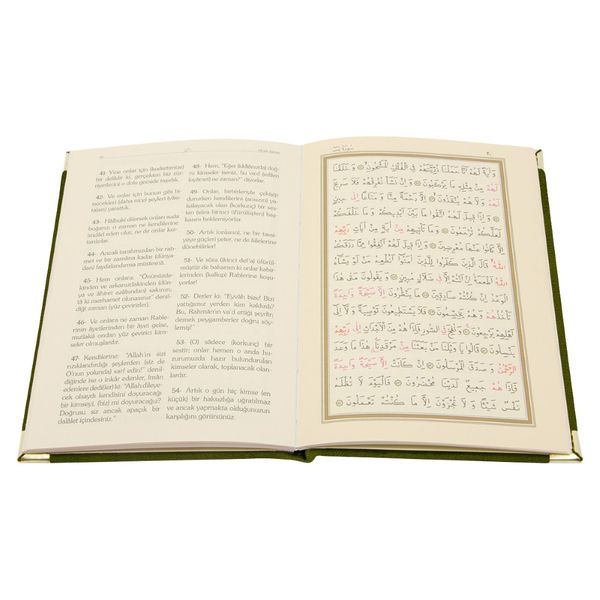 41- Yine onlar için (kudretimize)
bir delildir ki, gerçekten biz zür-
riyetlerini o dolu gemide taşıdık.
42- Ve onlar için bunun gibi bi-
necekleri (daha nice) şeyleri (vâsı-
taları) yarattık.
43- Hâlbuki dilersek onları suda
boğarız; o zaman ne kendilerine
imdâd eden olur, ne de onlar kur-
tarılırlar.
44- Ancak tarafımızdan bir rah-
met ve bir zamâna kadar (dünya-
dan) faydalandırma müstesnâ.
45- Hem onlara: "Önünüzde-
kinden ve arkanızdakinden (dün-
ya ve âhiret azâbından) sakının;
tâ ki merhamet olunasınız" denil-
diği zaman (yüz çevirirler).
46- Ve onlara ne zaman Rable-
rinin âyetlerinden bir âyet gelse,
mutlaka ondan yüz çevirici kim-
seler olmuşlardır.
47- Kendilerine: "Allah'ın sizi
rızıklandırdığı şeylerden (siz de
O'nun yolunda) sarf edin!" denil-
diğinde ise o inkâr edenler, îmân
edenlere dedi(ler) ki: "Allah dileye-
cek olsaydı kendisini doyuracağı
bir kimseyi, (biz) mi doyuracağız?
Doğrusu siz ancak apaçık bir
dalâlet içindesiniz."
48- Hem, "Eğer (iddiânızda) doğ-
ru kimseler iseniz, bu vaad (edilen
kıyâmet) ne zaman?" diyorlar.
49- Onlar, birbirleriyle çekişip
dururlarken kendilerini (ansızın) ya-
kalayacak olan (korkunç) bir ses-
den (sûra birinci üfürülüşten) baş-
kasını beklemiyorlar.
50- Artık (onlar) ne bir tavsi-
yeye güçleri yeter, ne de âilelerine
dönebilirler!
51- Ve sûra (ikinci def'a) üfürül-
müştür de bakarsın ki onlar kabir-
lerinden (kalkıp) Rablerine koşu-
yorlar!
52- Derler ki: "Eyvâh bize! Bizi
yattığımız yerden kim kaldırdı?
Bu, Rahmân'ın va'd ettiği şeydir;
demek peygamberler doğru söyle-
miş!"
53- (O) sâdece (korkunç) bir
sestir; onlar hemen o anda hu-
zurumuzda hazır bulundurulan
kimseler olarak, toplanacak olan-
lardır.
54- Artık o gün hiç kimse (en
küçük) bir haksızlığa uğratılmaz
ve ancak yapmakta olduğunuzun
karşılığını görürsünüz.
وَاٰيَةٌ لَهُمْ اَنَّا حَمَلْنَا ذُرِّيَّتَهُمْ فِي الْفُلْكِ الْمَشْحُونِ وَخَلَقْنَا
لَهُمْ مِنْ مِثْلِهِ مَا يَرْكَبُونَ وَاِنْ نَشَأْ نُغْرِقْهُمْ فَلَا صَرِيخَ
لَهُمْ وَلَا هُمْ يُنْقَذُونَ اِلَّا رَحْمَةً مِنَّا وَمَتَاعًا اِلٰى
حِينٍ وَاِذَا قِيلَ لَهُمُ اتَّقُوا مَا بَيْنَ اَيْدِيكُمْ وَمَا خَلْفَكُمْ
لَعَلَّكُمْ تُرْحَمُونَ وَمَا تَأْتِيهِمْ مِنْ اٰيَةٍ مِنْ اٰيَاتِ رَبِّهِمْ
اِلَّا كَانُوا عَنْهَا مُعْرِضِينَ وَاِذَا قِيلَ لَهُمْ اَنْفِقُوا مِمَّا رَزَقَكُمُ
اللّٰهُ قَالَ الَّذِينَ كَفَرُوا لِلَّذِينَ اٰمَنُوا اَنُطْعِمُ مَنْ لَوْ يَشَاءُ
اللّٰهُ اَطْعَمَهُ اِنْ اَنْتُمْ اِلَّا فِي ضَلَالٍ مُبِينٍ وَيَقُولُونَ مَتٰى هٰذَا
الْوَعْدُ اِنْ كُنْتُمْ صَادِقِينَ مَا يَنْظُرُونَ اِلَّا صَيْحَةً وَاحِدَةً
تَأْخُذُهُمْ وَهُمْ يَخِصِّمُونَ فَلَا يَسْتَطِيعُونَ تَوْصِيَةً وَلَا اِلٰى
اَهْلِهِمْ يَرْجِعُونَ وَنُفِخَ فِي الصُّورِ فَاِذَا هُمْ مِنَ الْاَجْدَاثِ اِلٰى رَبِّهِمْ
يَنْسِلُونَ قَالُوا يَا وَيْلَنَا مَنْ بَعَثَنَا مِنْ مَرْقَدِنَا هٰذَا مَا وَعَدَ
الرَّحْمٰنُ وَصَدَقَ الْمُرْسَلُونَ اِنْ كَانَتْ اِلَّا صَيْحَةً وَاحِدَةً
فَاِذَا هُمْ جَمِيعٌ لَدَيْنَا مُحْضَرُونَ فَالْيَوْمَ لَا تُظْلَمُ
نَفْسٌ شَيْئًا وَلَا تُجْزَوْنَ اِلَّا مَا كُنْتُمْ تَعْمَلُونَ